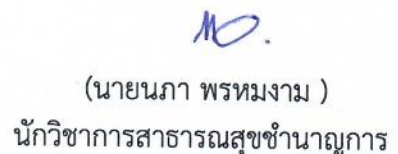 (นายนภา พรหมงาม )
นักวิชาการสาธารณสุขชำนาญการ